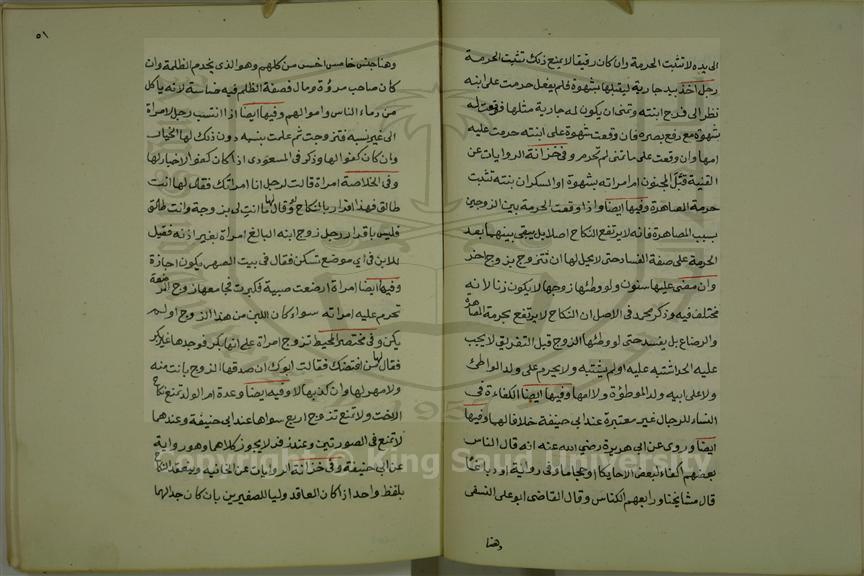 الى يده لا تثبت الحرمة وان كان رقيقا لا يمنع ذلك تثبت الحرمة
رجل اخذ بيد جارية ليقبلها بشهوة فلم يفعل حرمت على ابنه
نظر الى فرج ابنته وتمنى ان يكون له جارية مثلها فوقعت له
شهوة مع رفع بصره فان وقعت شهوة على ابنته حرمت عليه
امها وان وقعت على ما تمنى لم تحرم وفي خزانة الروايات عن
القنية قبّل المجنون ام امراته بشهوة او السكران بنته تثبت
حرمة المصاهرة وفيها ايضا واذا وقعت الحرمة بين الزوجين
بسبب المصاهرة فانه لا يرتفع النكاح اصلا بل يبقى بينهما بعد
الحرمة على صفة الفساد حتى لا يحل لها ان تتزوج بزوج اخر
وان مضى عليها سنون ولو وطئها زوجها لا يكون زنا لانه
مختلف فيه وذكر محمد في الاصل ان النكاح لا يرتفع بحرمة المصاهرة
والرضاع بل يفسد حتى لو وطئها الزوج قبل التفريق لا يجب
عليه الحد اشتبه عليه او لم يشتبه ولا يحرم على ولد الواطئ
ولا على ابيه ولد الموطؤة ولا امها وفيها ايضا الكفاءة في
النساء للرجال غير معتبرة عند ابي حنيفة خلافا لهما وفيها
ايضا وروى عن ابي هريرة رضي الله عنه انه قال الناس
بعضهم اكفاء لبعض الا حايكا او حجاما وفي رواية او دباغا
قال مشايخنا ورابعهم الكناس وقال القاضي ابو على النسفى
وهنا
٥١
وهنا جنس خامس اخس من كلهم وهو الذي يخدم الظلمة وان
كان صاحب مروؤة ومال فصفة الظلم فيه خساسة لانه ياكل
من دماء الناس واموالهم وفيها ايضا اذا انتسب رجل لامراة
الى غير نسبه فتزوجت ثم علمت بنسبه دون ذلك لها الخيار
وان كان كفوا لها وذكر في المسعودى اذا كان كفوا لا خيار لها
وفي الخلاصة امراة قالت لرجل انا امراتك فقال لها انت
طالق فهذا اقرار بالنكاح ولو قال لها ما انت لى بزوجة وانت طالق
فليس باقرار رجل زوج ابنه البالغ امراة بغير اذنه فقيل
للابن في اي موضع تسكن فقال في بيت الصهر يكون اجازة
وفيها ايضا امراة ارضعت صبية فكبرت فجامعها زوج المرضعة
تحرم عليه امراته سواء كان اللبن من هذا الزوج او لم
يكن وفي مختصر المحيط تزوج امراة على انها بكر فوجدها غير بكر
فقال لها من افتضك فقالت ابوك ان صدقها الزوج بانت منه
ولا مهر لها وان كذبها لا وفيه ايضا وعدة ام الولد تمنع نكاح
الاخت ولا تمنع تزوج اربع سواها عند ابي حنيفة وعندهما
لا تمنع في الصورتين وعند زفر لا يجوز كلاهما وهو رواية
عن ابي حنيفة وفي خزانة الروايات عن الخانية وينعقد النكاح
بلفظ واحد اذا كان العاقد وليا للصغيرين بان كان جدا لهما